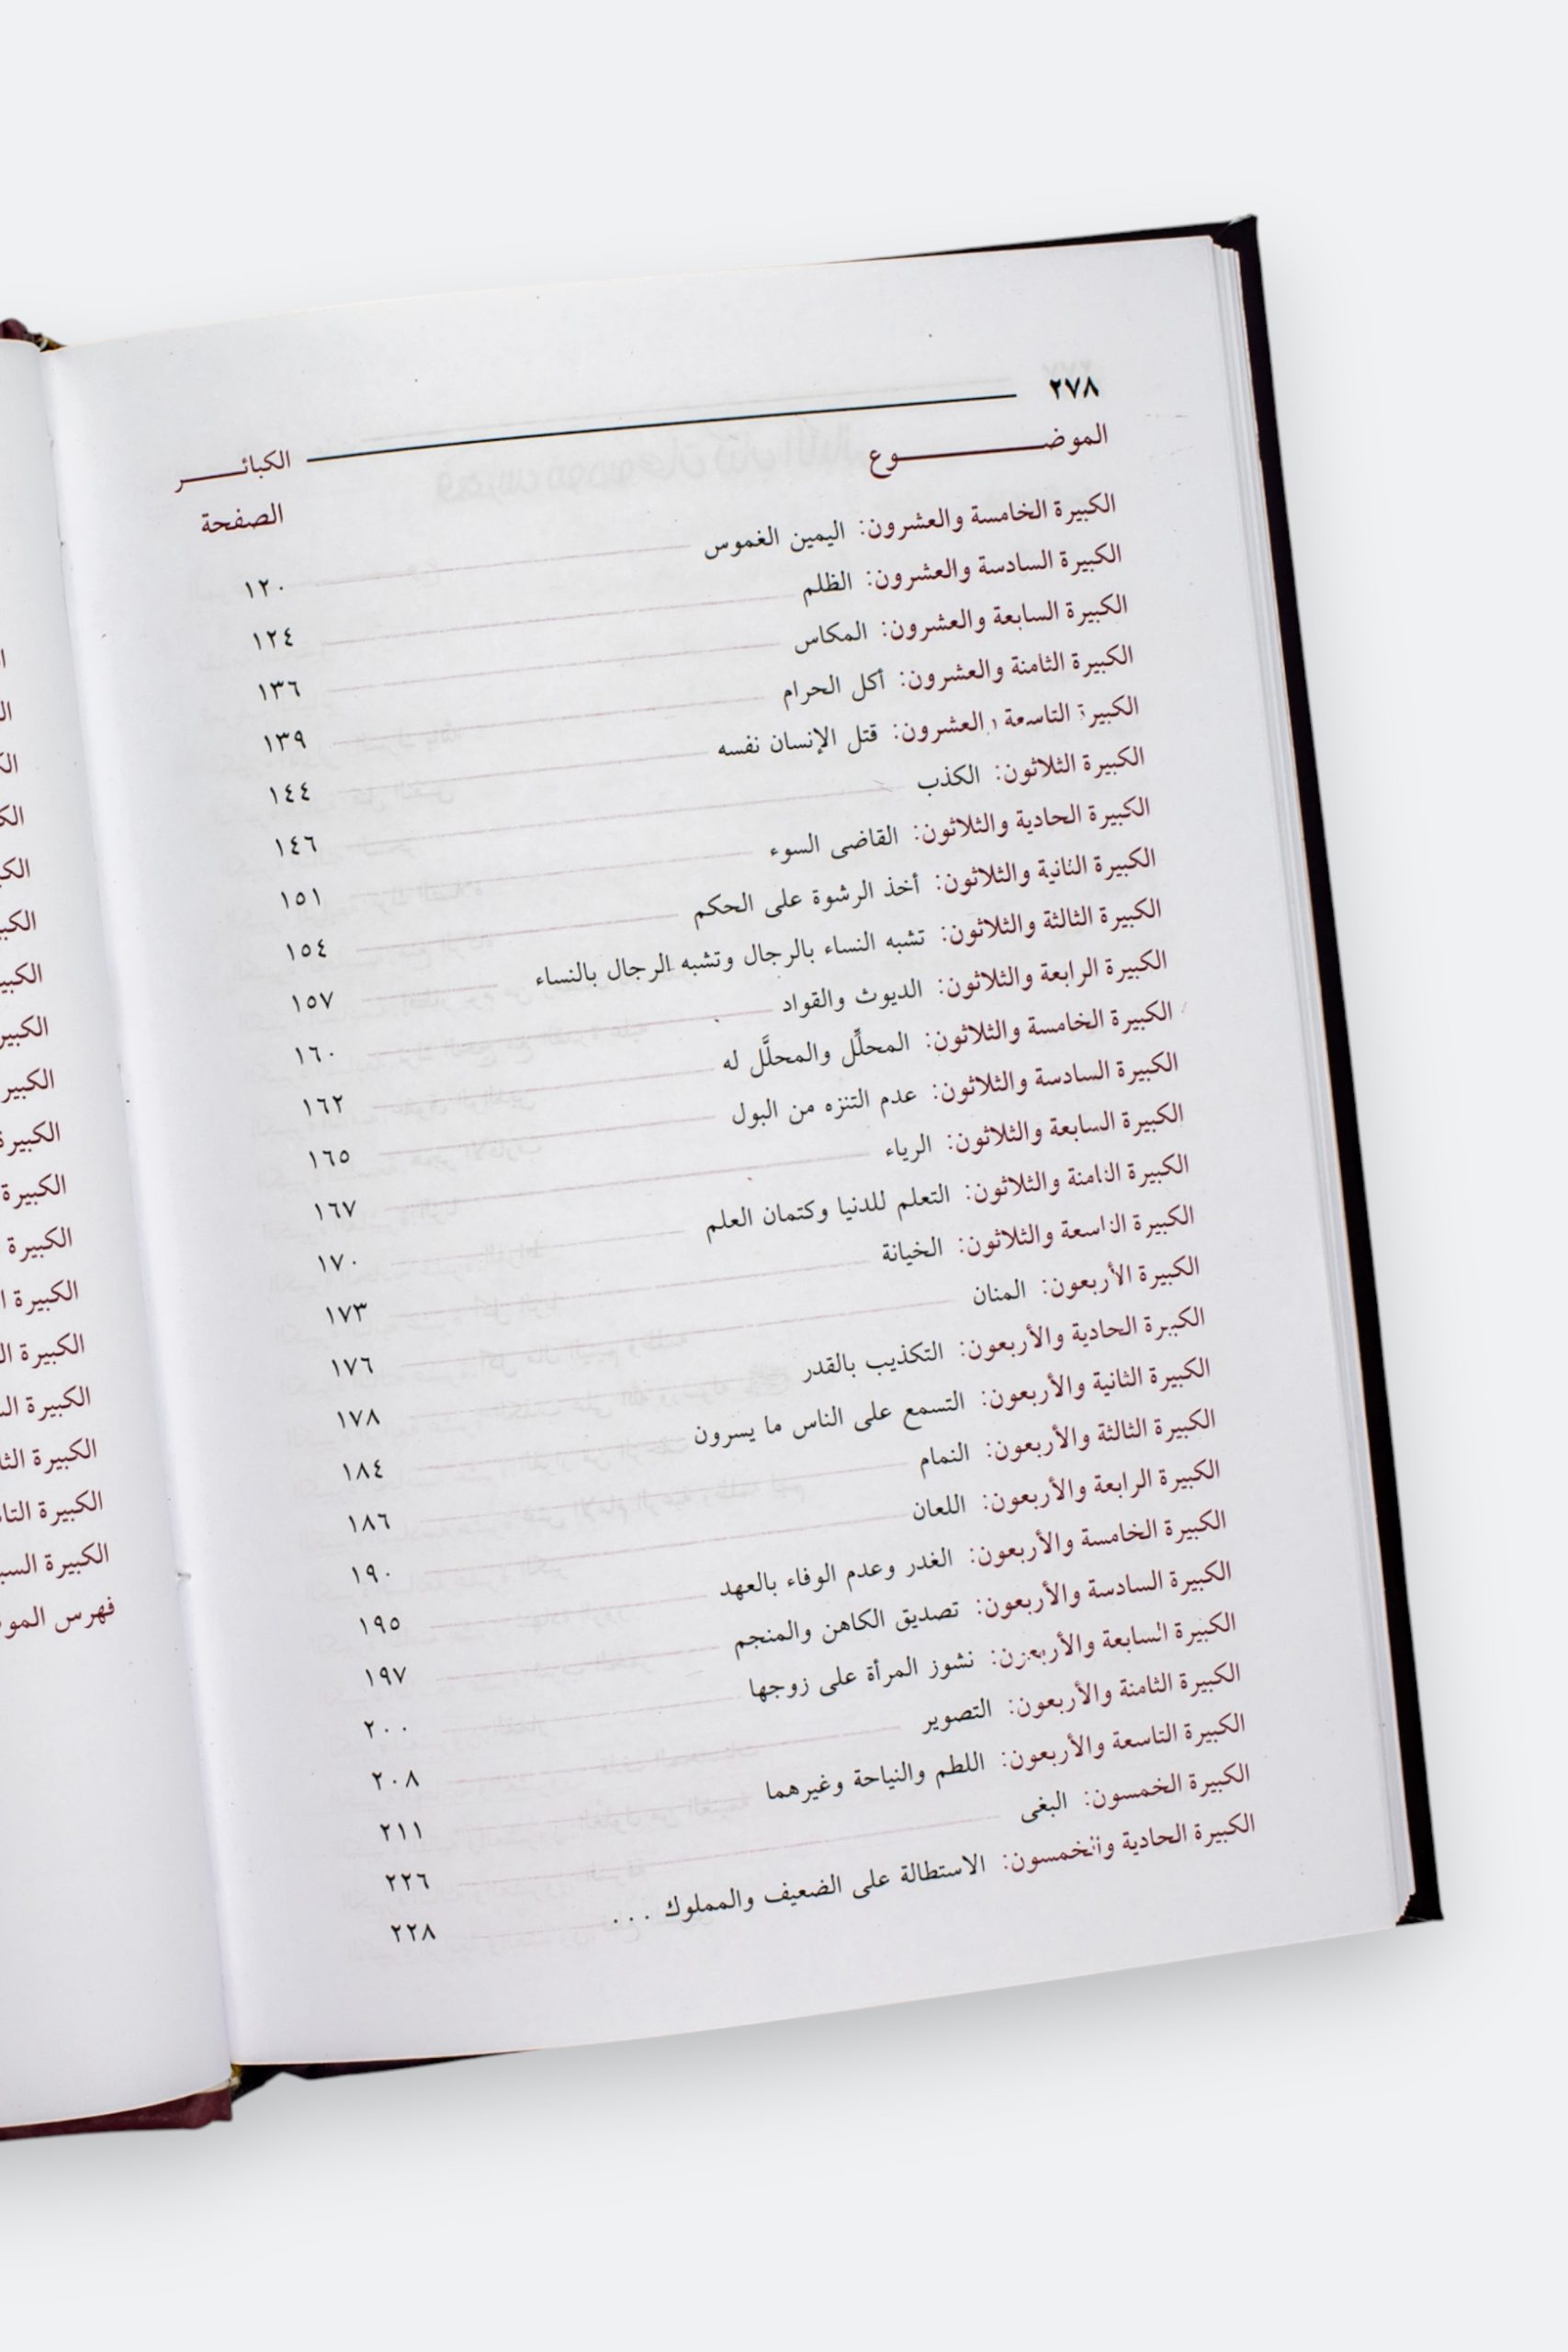 ٢٧٨ الكبائـــــر
الموضـــــــــــوع الصفحة
الكبيرة الخامسة والعشرون: اليمين الغموس ١٢٠
الكبيرة السادسة والعشرون: الظلم ١٢٤
الكبيرة السابعة والعشرون: المكاس ١٣٦
الكبيرة الثامنة والعشرون: أكل الحرام ١٣٩
الكبيرة التاسعة والعشرون: قتل الإنسان نفسه ١٤٤
الكبيرة الثلاثون: الكذب ١٤٦
الكبيرة الحادية والثلاثون: القاضى السوء ١٥١
الكبيرة الثانية والثلاثون: أخذ الرشوة على الحكم ١٥٤
الكبيرة الثالثة والثلاثون: تشبه النساء بالرجال وتشبه الرجال بالنساء ١٥٧
الكبيرة الرابعة والثلاثون: الديوث والقواد ١٦٠
الكبيرة الخامسة والثلاثون: المحلِّل والمحلَّل له ١٦٢
الكبيرة السادسة والثلاثون: عدم التنزه من البول ١٦٥
الكبيرة السابعة والثلاثون: الرياء ١٦٧
الكبيرة الثامنة والثلاثون: التعلم للدنيا وكتمان العلم ١٧٠
الكبيرة التاسعة والثلاثون: الخيانة ١٧٣
الكبيرة الأربعون: المنان ١٧٦
الكبيرة الحادية والأربعون: التكذيب بالقدر ١٧٨
الكبيرة الثانية والأربعون: التسمع على الناس ما يسرون ١٨٤
الكبيرة الثالثة والأربعون: النمام ١٨٦
الكبيرة الرابعة والأربعون: اللعان ١٩٠
الكبيرة الخامسة والأربعون: الغدر وعدم الوفاء بالعهد ١٩٥
الكبيرة السادسة والأربعون: تصديق الكاهن والمنجم ١٩٧
الكبيرة السابعة والأربعون: نشوز المرأة على زوجها ٢٠٠
الكبيرة الثامنة والأربعون: التصوير ٢٠٨
الكبيرة التاسعة والأربعون: اللطم والنياحة وغيرهما ٢١١
الكبيرة الخمسون: البغى ٢٢٦
الكبيرة الحادية والخمسون: الاستطالة على الضعيف والمملوك ... ٢٢٨
الكبيرة
الكبيرة
الكبيرة
الكبيرة
الكبيرة
الكبيرة
الكبيرة
الكبيرة
الكبيرة
فهرس